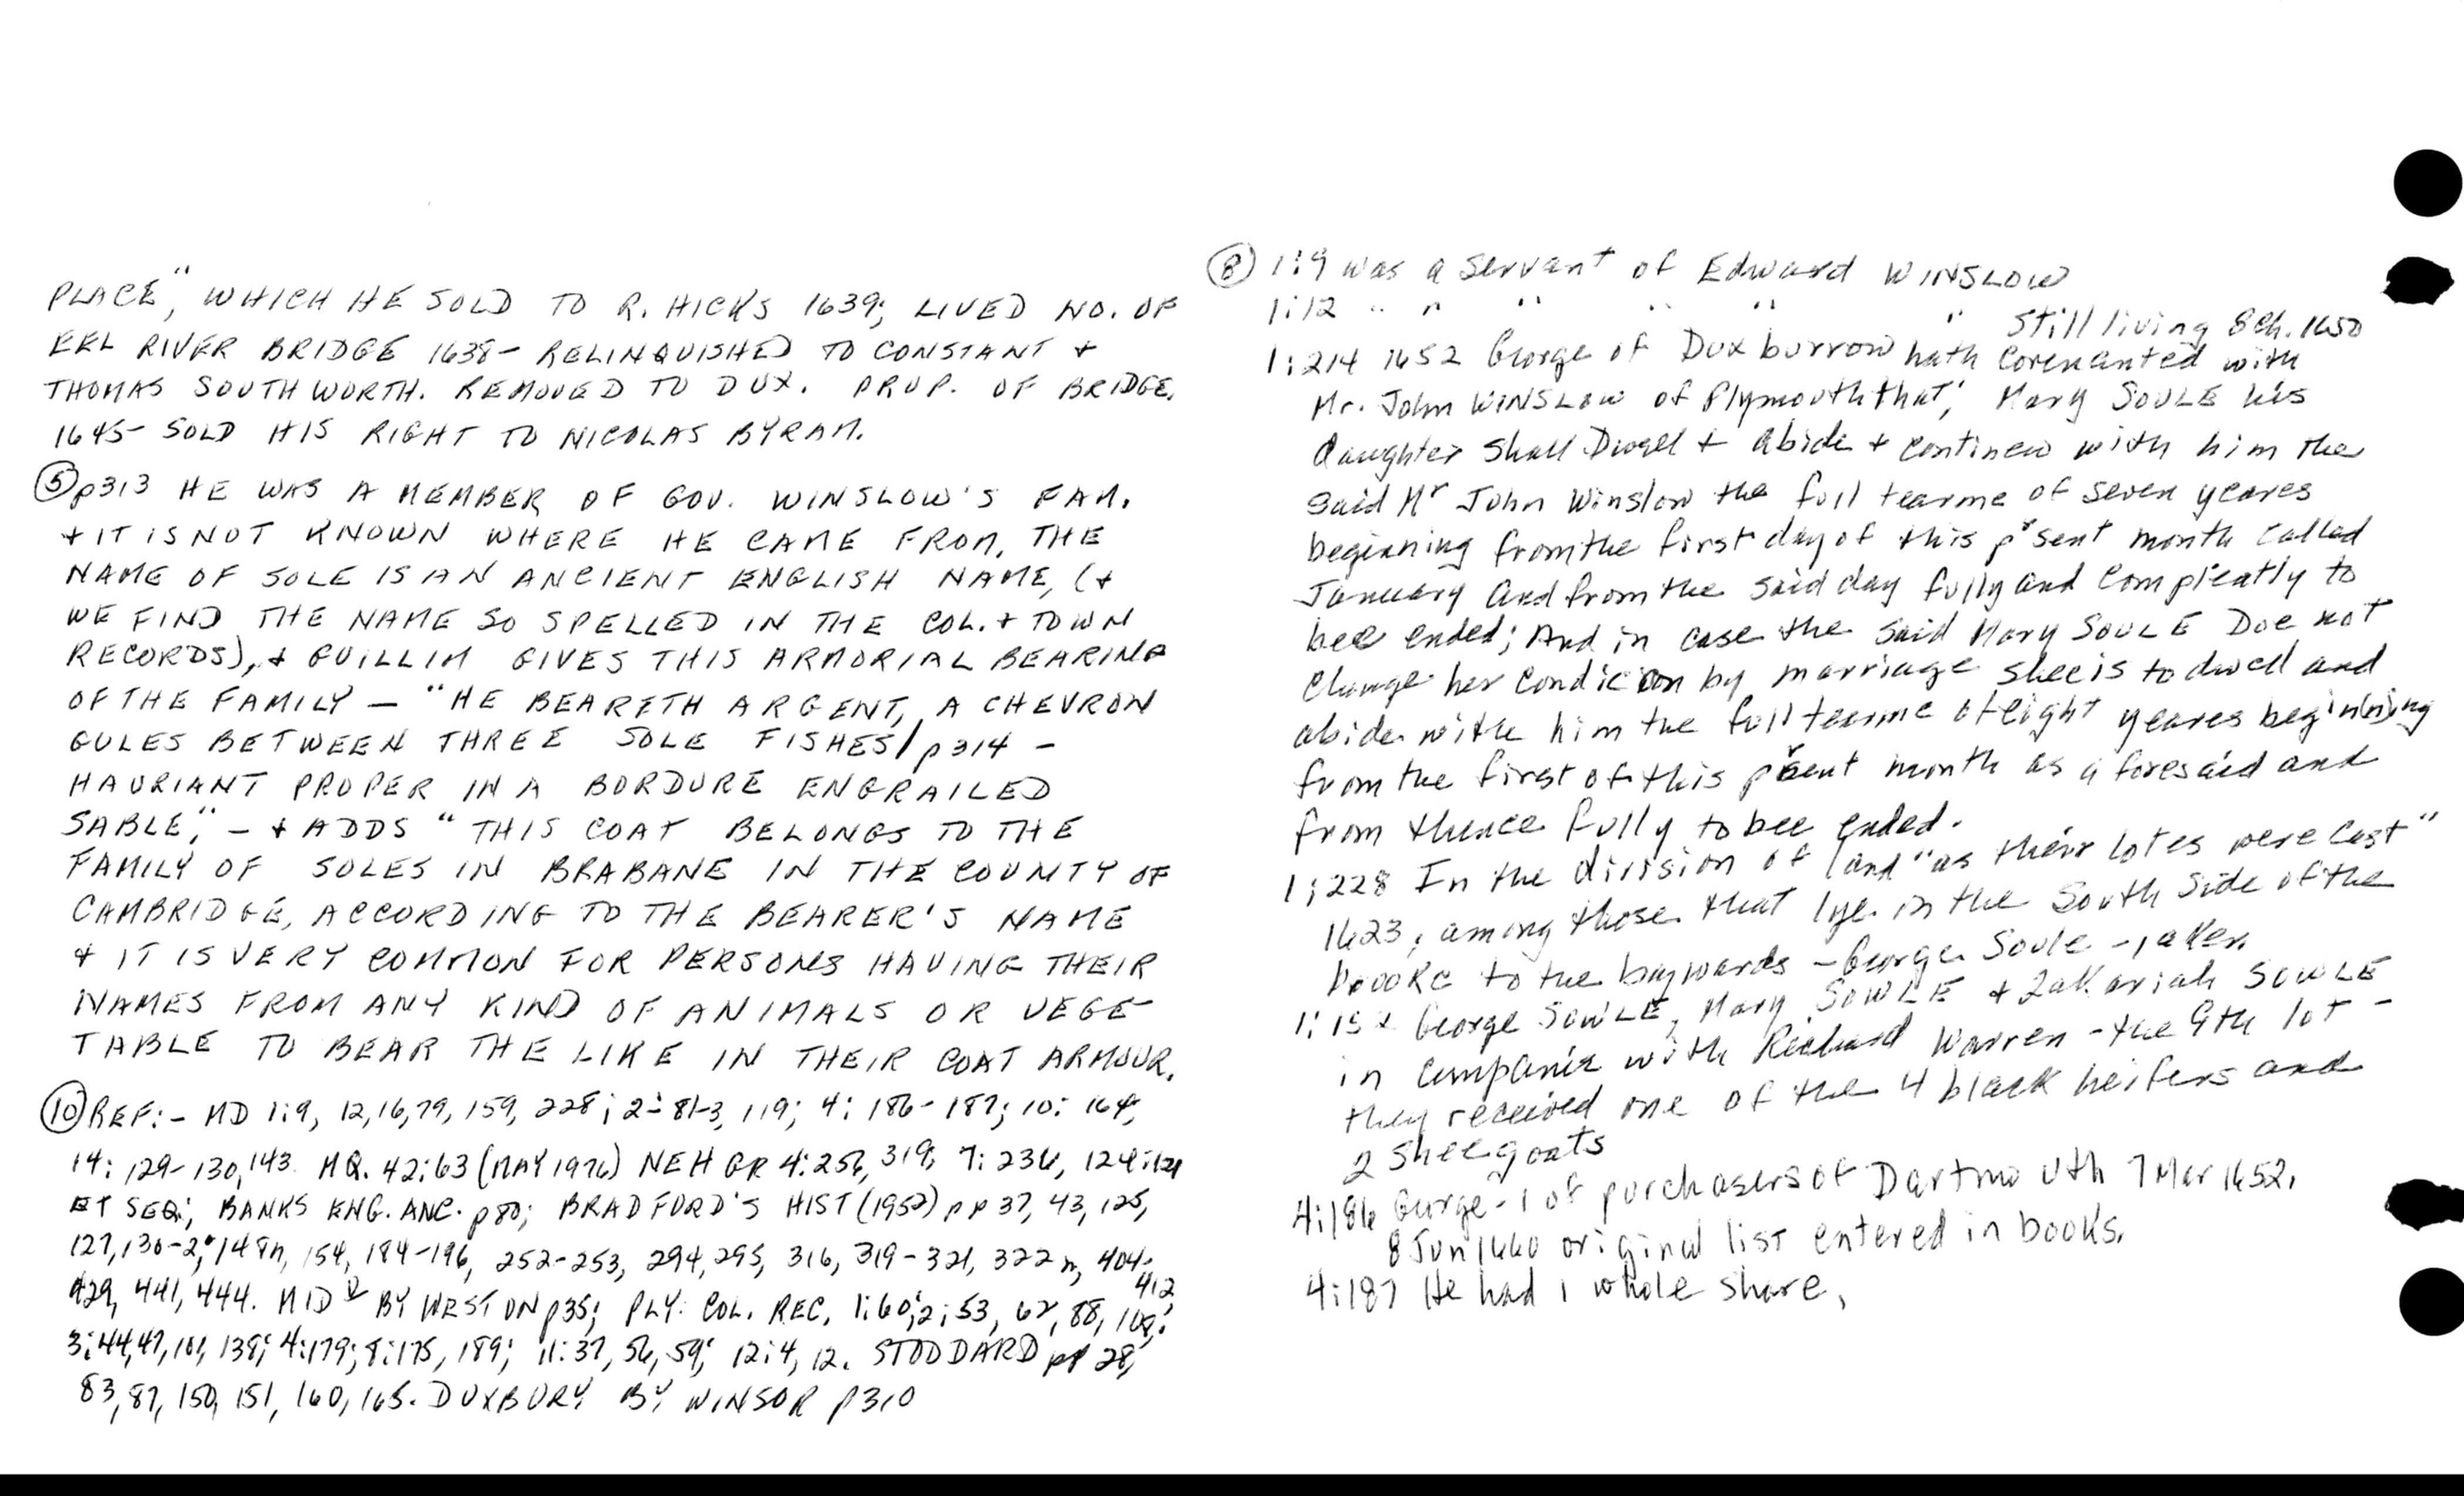 PLACE," WHICH HE SOLD TO R. HICKS 1639; LIVED NO. OF
EEL RIVER BRIDGE 1638- RELINQUISHED TO CONSTANT +
THOMAS SOUTHWORTH. REMOVED TO DUX. PROP. OF BRIDGE.
1645 SOLD HIS RIGHT TO NICOLAS BYRAM.
⑤ p313 HE WAS A MEMBER OF GOV. WINSLOW'S FAM.
+ IT IS NOT KNOWN WHERE HE CAME FROM, THE
NAME OF SOLE IS AN ANCIENT ENGLISH NAME, (+
WE FIND THE NAME SO SPELLED IN THE COL. + TOWN
RECORDS), + GUILLIM GIVES THIS ARMORIAL BEARING
OF THE FAMILY — "HE BEARETH ARGENT, A CHEVRON
GULES BETWEEN THREE SOLE FISHES/p314 -
HAURIANT PROPER IN A BORDURE ENGRAILED
SABLE," - + ADDS "THIS COAT BELONGS TO THE
FAMILY OF SOLES IN BRABANE IN THE COUNTY OF
CAMBRIDGE, ACCORDING TO THE BEARER'S NAME
+ IT IS VERY COMMON FOR PERSONS HAVING THEIR
NAMES FROM ANY KIND OF ANIMALS OR VEGE-
TABLE TO BEAR THE LIKE IN THEIR COAT ARMOUR.
⑩ REF:- MD 1:9, 12, 16, 79, 159, 228; 2: 81-3, 119; 4: 186-187; 10: 164,
14: 129-130, 143. MQ. 42:63 (MAY 1976) NEHGR 4:256, 319; 7: 236, 124:
ET SEQ; BANKS ENG. ANC. p80; BRADFORD'S HIST (1952) pp 37, 43, 125,
127, 130-2, 148n, 154, 184-196, 252-253, 294, 295, 316, 319-321, 322n, 404, 412
429, 441, 444. MID BY WESTON p35; PLY. COL. REC. 1:60; 2:53, 62, 88, 108;
3:44, 47, 101, 138; 4:179; 8:175, 189; 11:37, 56, 59; 12:4, 12. STODDARD pp 28,
83, 87, 150, 151, 160, 165. DUXBURY BY WINSOR p310
⑧ 1:9 was a servant of Edward WINSLOW
1:12 " " " " " " Still living 1650
1:214 1652 George of Duxburrow hath Covenanted with
Mr. John WINSLOW of Plymouth that, Mary SOULE his
daughter shall Dwell + abide + continew with him the
said Mr John Winslow the full tearme of seven yeares
beginning from the first day of this psent month called
January And from the said day fully and compleatly to
bee ended; And in case the said Mary SOULE Doe not
Change her condicion by marriage shee is to dwell and
abide with him the full tearme of eight yeares beginning
from the first of this psent month as aforesaid and
from thence fully to bee ended.
1:228 In the division of land "as their lotes were Cast"
1623, among those that lye in the South Side of the
brooke to the baywards - George Soule - 1 aker.
1:152 George SOWLE, Mary SOWLE + Zakariah SOWLE
in Companie with Richard Warren - the 9th lot -
they received one of the 4 black heifers and
2 shee goats
4:186 George - 1 of purchasers of Dartmouth 7 Mar 1652,
8 Jun 1660 original list entered in books.
4:187 He had 1 whole share.